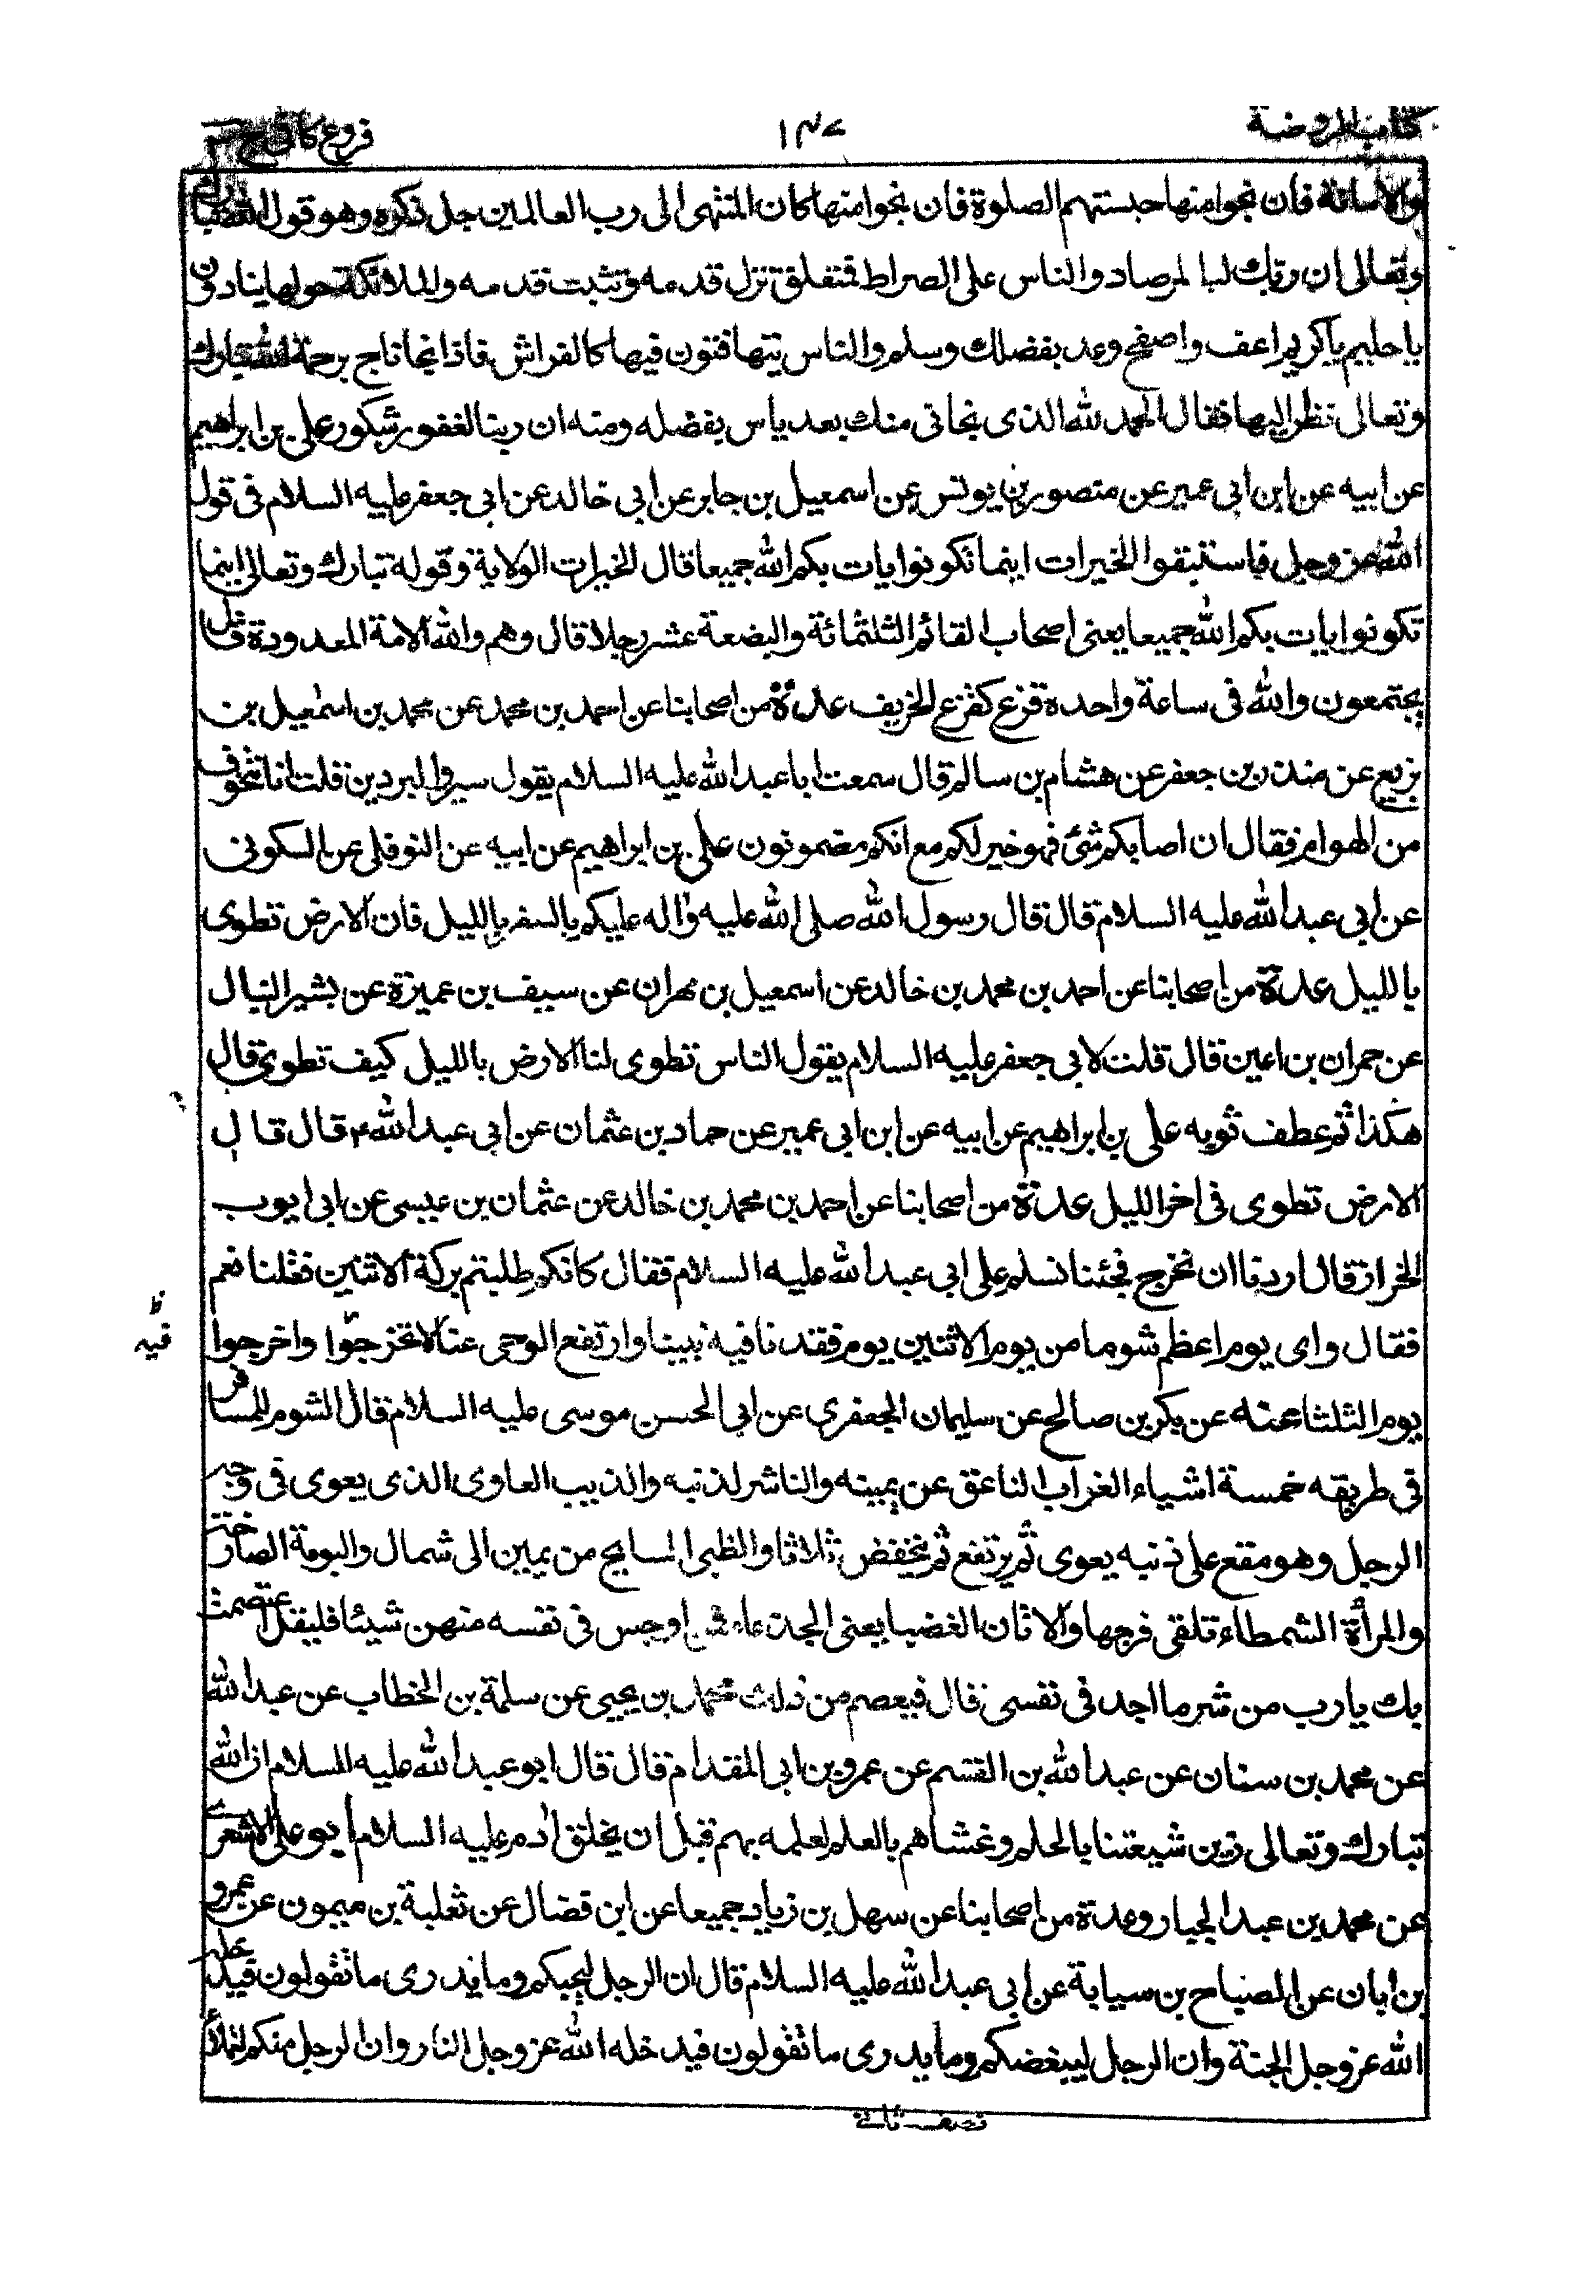 كتاب الروضة ١٤٧ فروع كافي ج ٣
والامانة فان نجوا منها حبستهم الصلوة فان نجوا منها كان المنتهى الى رب العالمين جل ذكره وهو قول الله تبارك
وتعالى ان ربك لبا لمرصاد والناس على الصراط فمتعلق تزل قدمه وتثبت قدمه والملائكة حولها ينادون
يا حليم يا كريم اعف واصفح وعد بفضلك وسلم والناس يتهافتون فيها كالفراش فاذا نجا ناج برحمة الله تبارك
وتعالى نظر اليها فقال الحمد لله الذى نجانى منك بعد ياس بفضله ومنه ان ربنا لغفور شكور على بن ابراهيم
عن ابيه عن ابن ابى عمير عن منصور بن يونس عن اسمعيل بن جابر عن ابى خالد عن ابى جعفر عليه السلام فى قول
الله عز وجل فاستبقوا الخيرات اينما تكونوا يات بكم الله جميعا قال الخيرات الولاية وقوله تبارك وتعالى اينما
تكونوا يات بكم الله جميعا يعنى اصحاب القائم الثلثمائة والبضعة عشر رجلا قال وهم والله الامة المعدودة قال
يجتمعون والله فى ساعة واحدة قزع كقزع الخريف عدة من اصحابنا عن احمد بن محمد عن محمد بن اسمعيل بن
بزيع عن منذر بن جعفر عن هشام بن سالم قال سمعت ابا عبد الله عليه السلام يقول سيروا البردين قلت انا نتخوف
من الهوام فقال ان اصابكم شئ فهو خير لكم مع انكم مضمونون على بن ابراهيم عن ابيه عن النوفلى عن السكونى
عن ابى عبد الله عليه السلام قال قال رسول الله صلى الله عليه واله عليكم بالسفر بالليل فان الارض تطوى
بالليل عدة من اصحابنا عن احمد بن محمد بن خالد عن اسمعيل بن مهران عن سيف بن عميرة عن بشير النبال
عن حمران بن اعين قال قلت لابى جعفر عليه السلام يقول الناس تطوى لنا الارض بالليل كيف تطوى قال
هكذا ثم عطف ثوبه على بن ابراهيم عن ابيه عن ابن ابى عمير عن حماد بن عثمان عن ابى عبد الله ع قال قال
الارض تطوى فى اخر الليل عدة من اصحابنا عن احمد بن محمد بن خالد عن عثمان بن عيسى عن ابى ايوب
الخراز قال اردنا ان نخرج فجئنا نسلم على ابى عبد الله عليه السلام فقال كانكم طلبتم بركة الاثنين فقلنا نعم
فقال واى يوم اعظم شوما من يوم الاثنين يوم فقدنا فيه نبينا وارتفع الوحى عنا لا تخرجوا واخرجوا
فيه
يوم الثلثا عنه عن بكر بن صالح عن سليمان الجعفرى عن ابى الحسن موسى عليه السلام قال الشوم للمسافر
فى طريقه خمسة اشياء الغراب الناعق عن يمينه والناشر لذنبه والذيب العاوى الذى يعوى فى وجه
الرجل وهو مقع على ذنبه يعوى ثم يرتفع ثم ينخفض ثلاثا والظبى السابح من يمين الى شمال والبومة الصارخة
والمرأة الشمطاء تلقى فرجها والاتان الغضبا يعنى الجدعاء فمن اوجس فى نفسه منهن شيئا فليقل اعتصمت
بك يا رب من شر ما اجد فى نفسى قال فيعصم من ذلك محمد بن يحيى عن سلمة بن الخطاب عن عبد الله
عن محمد بن سنان عن عبد الله بن القسم عن عمرو بن ابى المقدام قال قال ابو عبد الله عليه السلام ان الله
تبارك وتعالى زين شيعتنا بالحلم وغشاهم بالعلم لعلمه بهم قبل ان يخلق ادم عليه السلام ابو على الاشعرى
عن محمد بن عبد الجبار وعدة من اصحابنا عن سهل بن زياد جميعا عن ابن فضال عن ثعلبة بن ميمون عن عمرو
بن ابان عن الصباح بن سيابة عن ابى عبد الله عليه السلام قال ان الرجل ليحبكم وما يدرى ما تقولون فيدخله
الله عز وجل الجنة وان الرجل ليبغضكم وما يدرى ما تقولون فيدخله الله عز وجل النار وان الرجل منكم لتملأ
نصف ثانى